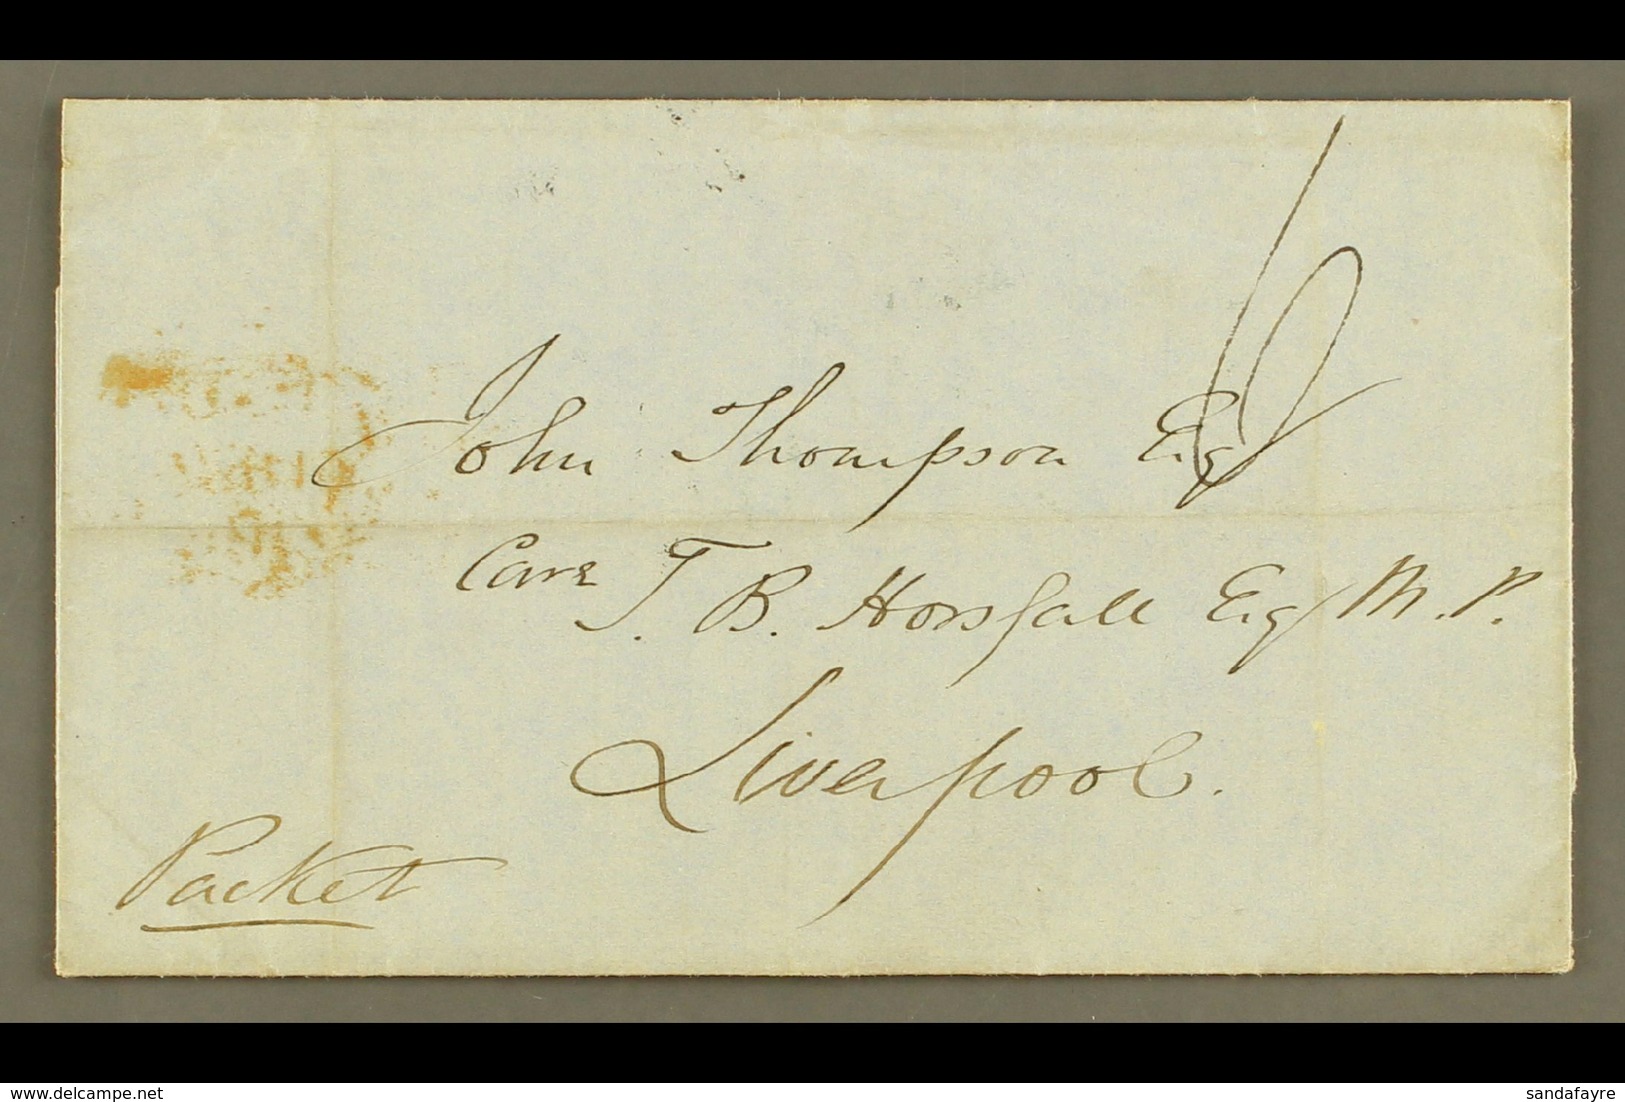 John Thompson Esq
Care T. B. Horsfall Esq M.P.
Liverpool.
Packet
delcampe.net
sandafayre